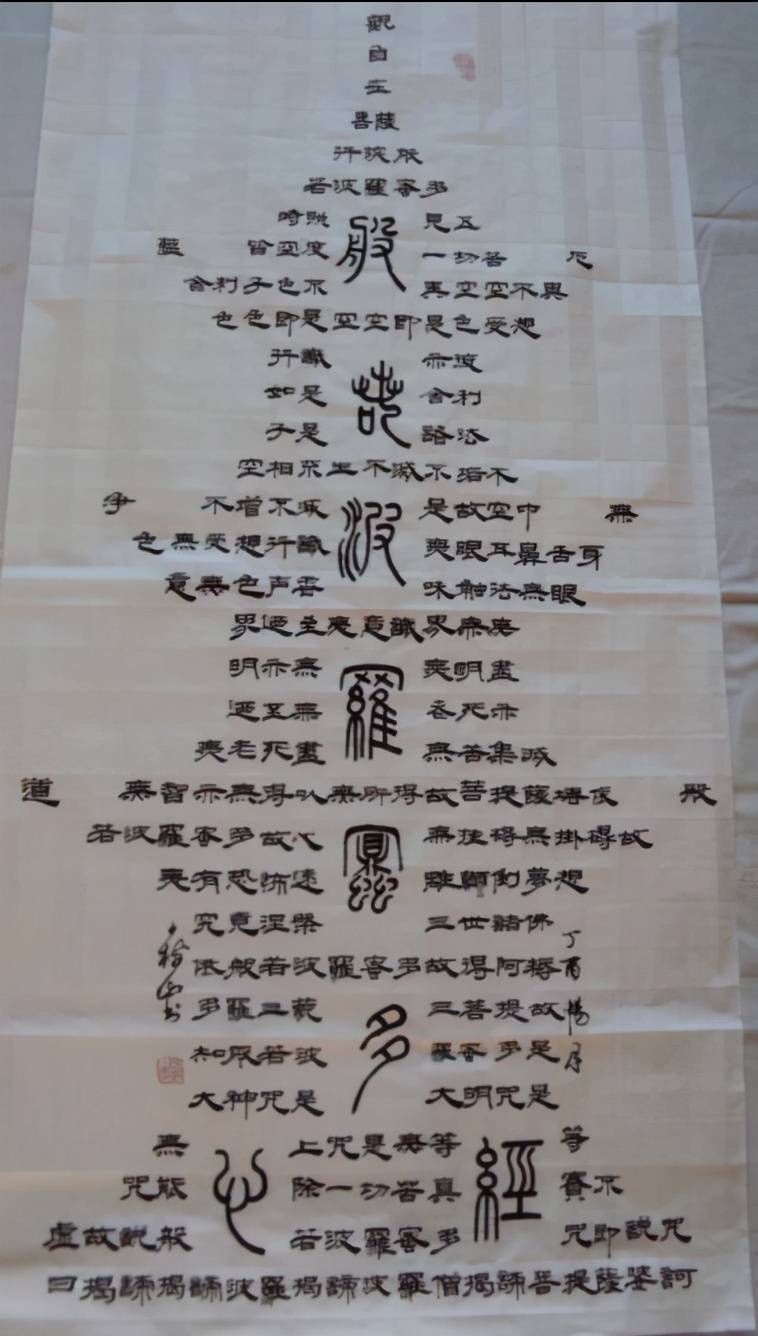 觀
自
在
菩薩
行深般
若波羅蜜多
時照 見五
蘊 皆空度 一切苦 厄
舍利子色不 異空空不異
色色即是空空即是色受想
行識 亦復
如是 舍利
子是 諸法
空相不生不滅不垢不
淨 不增不減 是故空中 無
色無受想行識 無眼耳鼻舌身
意無色声香 味触法無眼
界迺至無意識界無無
明亦無 無明盡
迺至無 老死亦
無老死盡 無苦集滅
道 無智亦無得以無所得故菩提薩埵依 般
若波羅蜜多故心 無挂碍無掛碍故
無有恐怖遠 離顛倒夢想
究竟涅槃 三世諸佛
依般若波羅蜜多故得阿耨
多羅三藐 三菩提故
知般若波 羅蜜多是
大神咒是 大明咒是
無 上咒是無等 等
咒能 除一切苦真 實不
虛故說般 若波羅蜜多 咒即說咒
曰揭諦揭諦波羅揭諦波羅僧揭諦菩提薩婆訶
般若波羅蜜多心經
丁酉陽月
山书